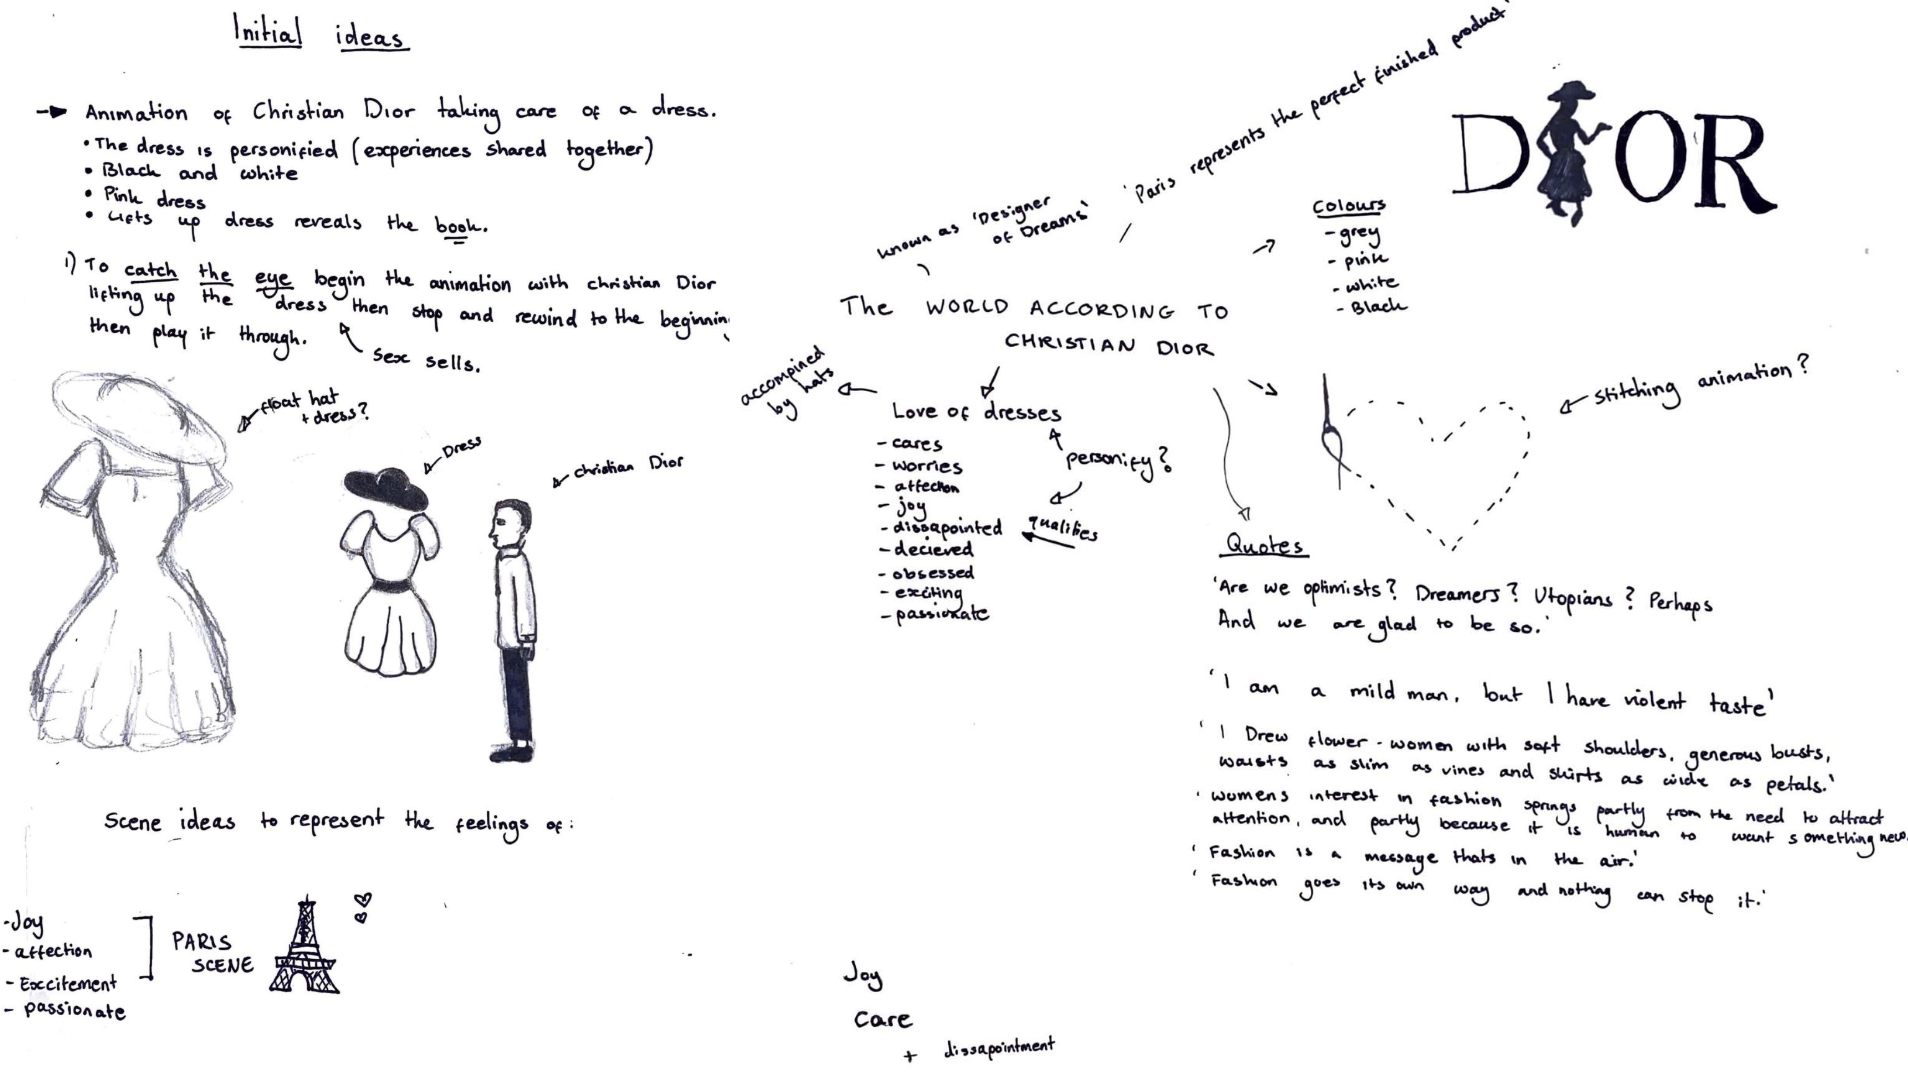 Initial ideas
Animation of Christian Dior taking care of a dress.
• The dress is personified (experiences shared together)
• Black and white
• Pink dress
• Lifts up dress reveals the book.
1) To catch the eye begin the animation with christian Dior
lifting up the dress then stop and rewind to the beginning
then play it through.
Sex sells.
float hat
+ dress?
Dress
christian Dior
Scene ideas to represent the feelings of:
- Joy
- affection
- Excitement
- passionate
PARIS
SCENE
known as 'Designer
of Dreams'
'Paris represents the perfect finished product'
DIOR
Colours
- grey
- pink
- white
- Black
The WORLD ACCORDING TO
CHRISTIAN DIOR
accompined
by hats
Love of dresses
- cares
- worries
- affection
- joy
- dissapointed
- decieved
- obsessed
- exciting
- passionate
personify?
qualities
stitching animation?
Quotes
'Are we optimists? Dreamers? Utopians? Perhaps
And we are glad to be so.'
'I am a mild man, but I have violent taste'
'I Drew flower-women with soft shoulders, generous busts,
waists as slim as vines and skirts as wide as petals.'
'womens interest in fashion springs partly from the need to attract
attention, and partly because it is human to want something new.
'Fashion is a message thats in the air.'
'Fashion goes its own way and nothing can stop it.'
Joy
Care
+ dissapointment